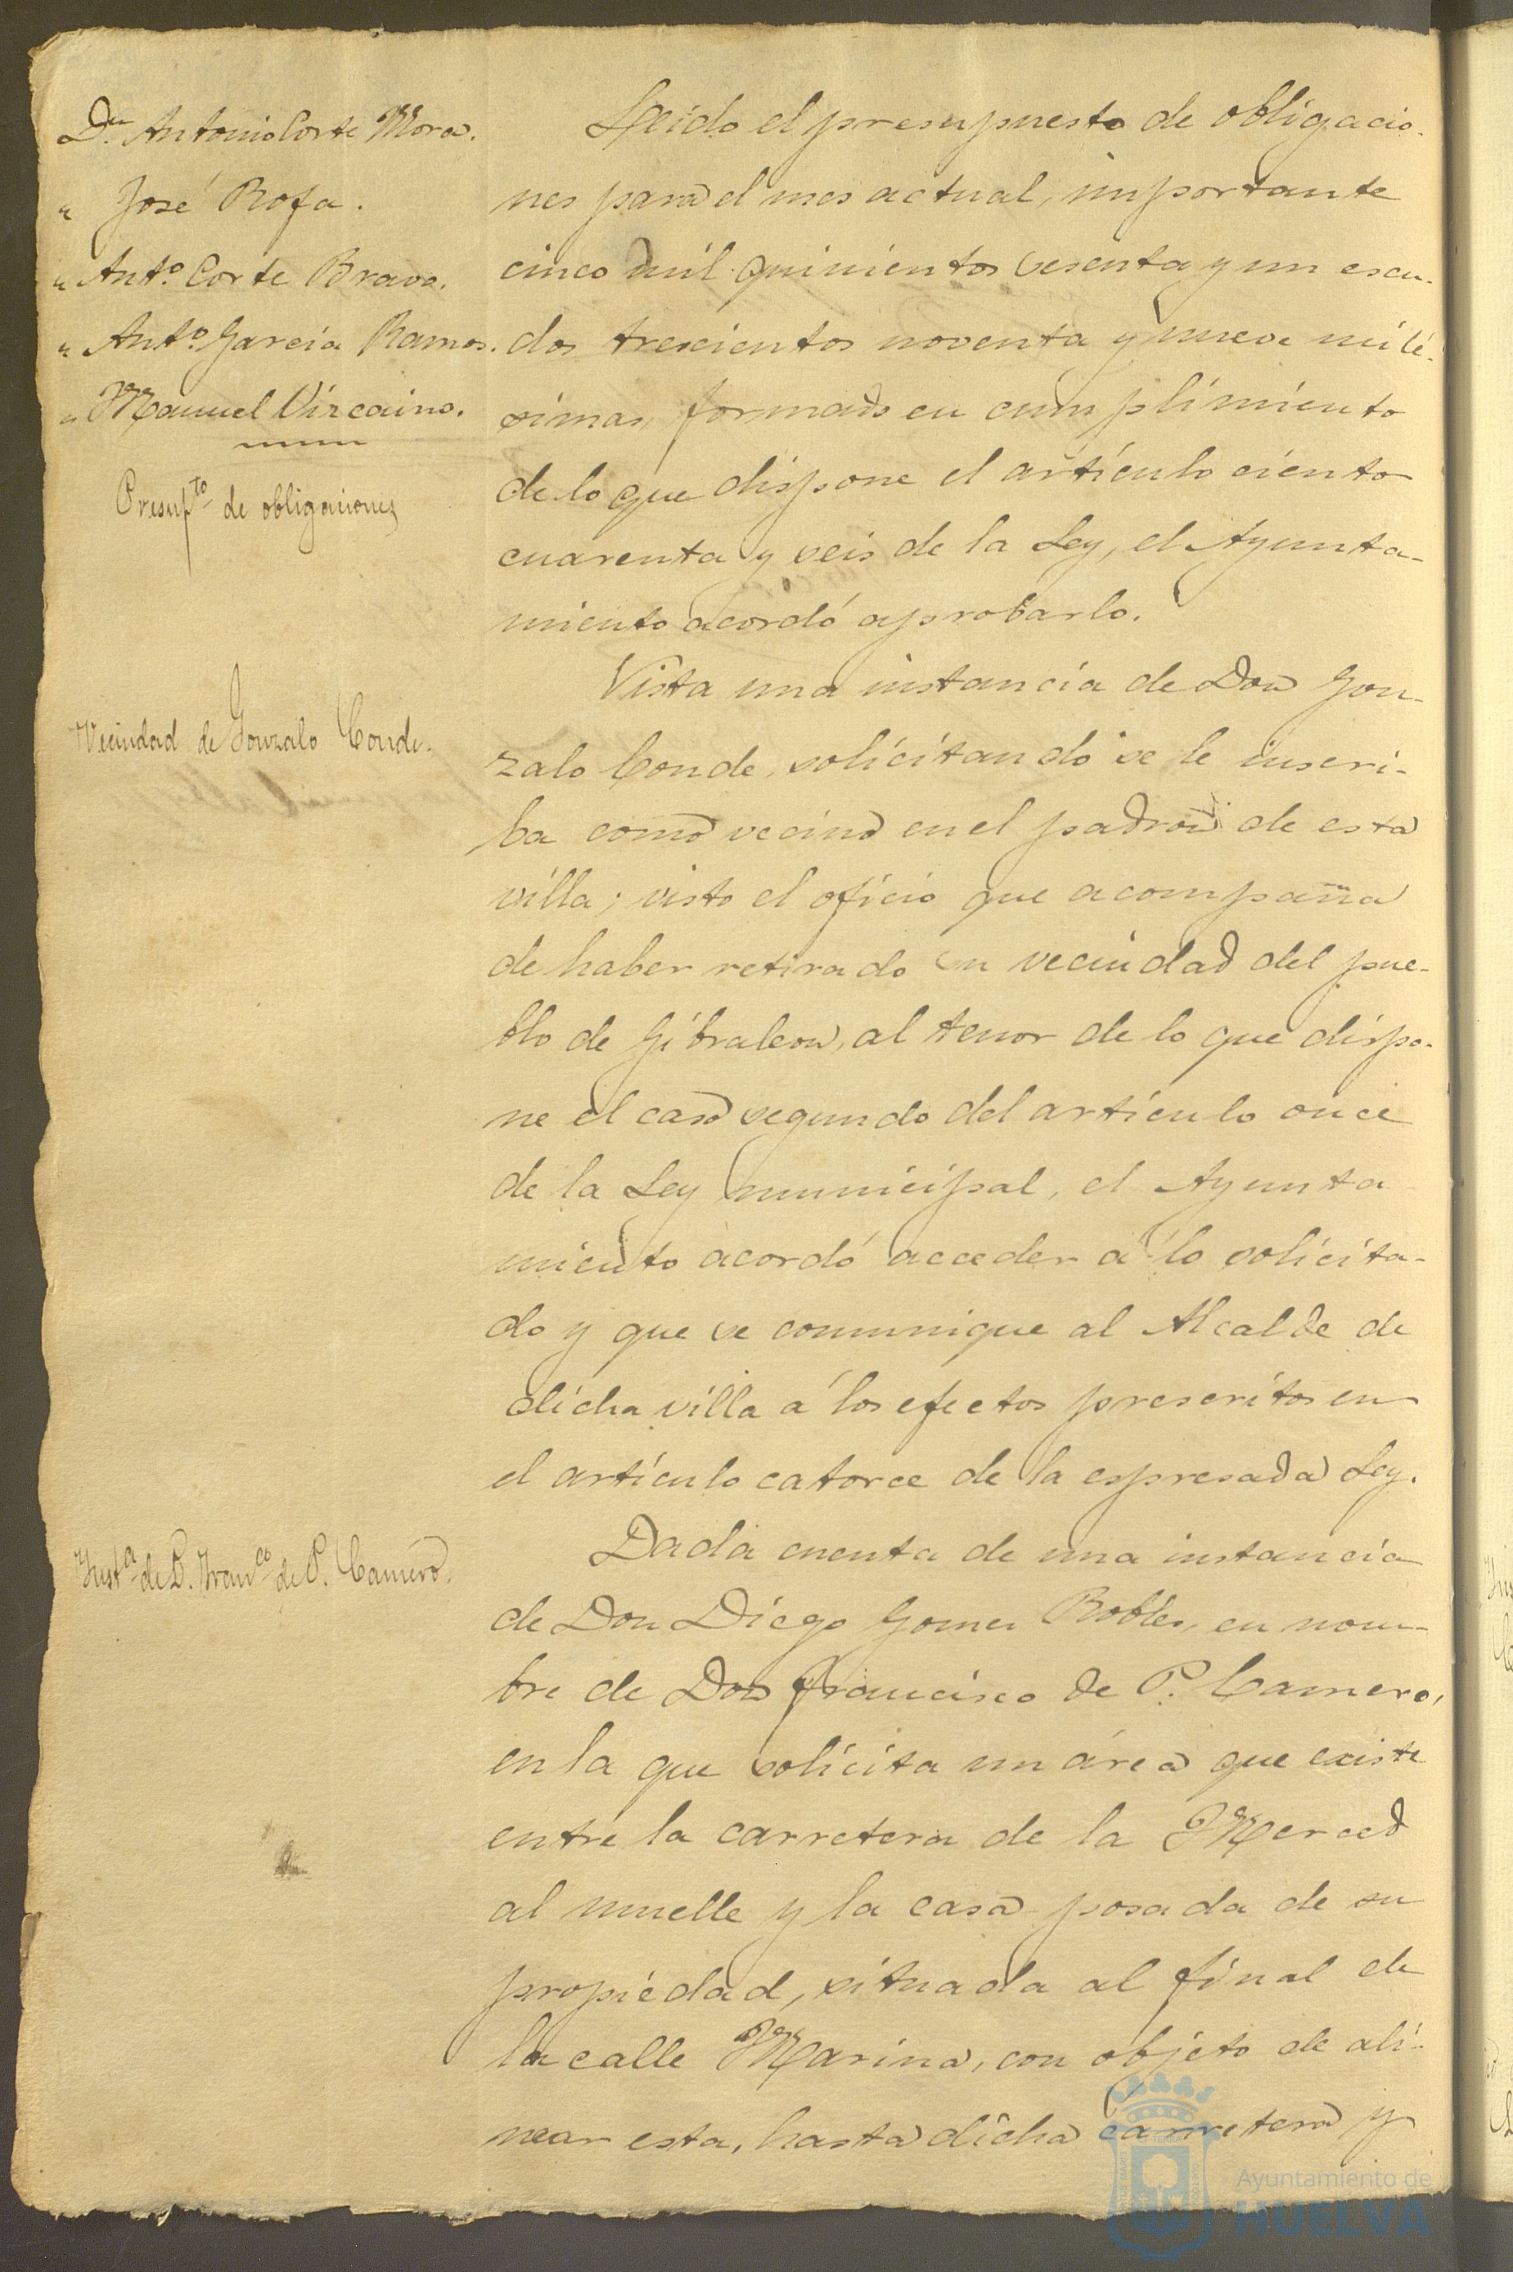 Dn. Antonio Corte Mora.
" José Rofa.
" Anto. Corte Bravo.
" Anto. Garcia Ramos.
" Manuel Vizcaino.
Presupto. de obligaciones
Leido el presupuesto de obligacio-
nes para el mes actual, importante
cinco mil quinientos sesenta y un escu-
dos trescientos noventa y nueve milé-
simas, formado en cumplimiento
de lo que dispone el artículo ciento
cuarenta y seis de la Ley, el Ayunta-
miento acordó aprobarlo.
Vecindad de Gonzalo Conde.
Vista una instancia de Don Gon-
zalo Conde, solicitando se le inscri-
ba como vecino en el padron de esta
villa; visto el oficio que acompaña
de haber retirado su vecindad del pue-
blo de Gibraleon, al tenor de lo que dispo-
ne el caso segundo del artículo once
de la Ley municipal, el Ayunta
miento acordó acceder á lo solicita-
do y que se comunique al Alcalde de
dicha villa á los efectos prescritos en
el artículo catorce de la espresada Ley.
Insta. de D. Franco. de P. Camero.
Dada cuenta de una instancia
de Don Diego Gomez Robles, en nom-
bre de Don Francisco de P. Camero,
en la que solicita un área que existe
entre la carretera de la Merced
al muelle y la casa posada de su
propiedad, situada al final de
la calle Marina, con objeto de ali-
near esta, hasta dicha carretera y
Ayuntamiento de
HUELVA